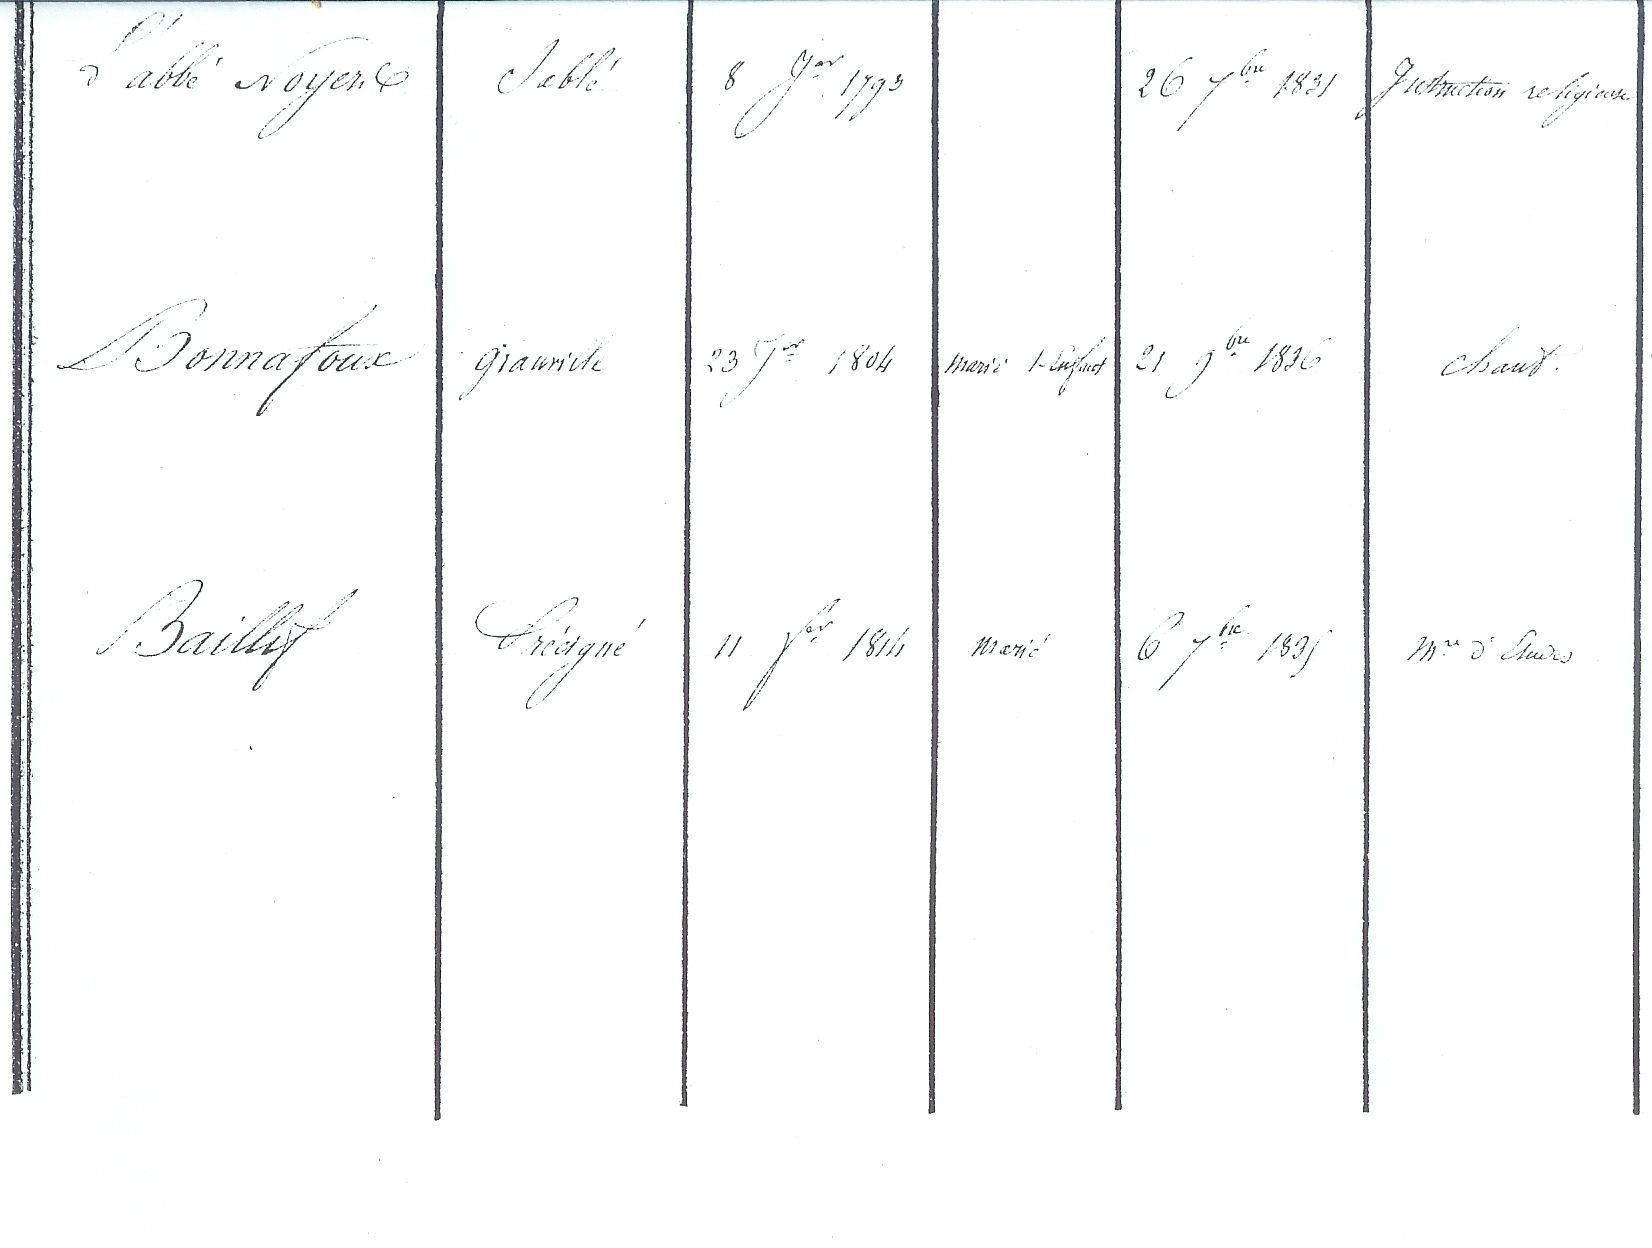 L'abbé Noyer Sablé 8 Jer 1793 26 7bre 1831 Instruction religieuse
Bonnafoux 23 Jer 1804 marié 1 Enfant 21 9bre 1836 chant.
Baillif Précigné 11 fer 1814 marié 6 7bre 1835 Mre d'Etudes